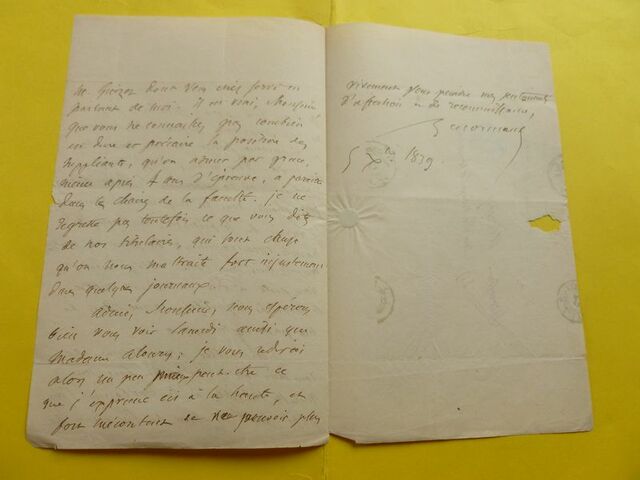 Mr Guizot dont vous vous êtes servi en
parlant de moi. Il est vrai, Monsieur
que vous ne connaissez pas combien
est dure et précaire la position des
suppliants, qu'on admet par grace,
même après 4 ans d'épreuve, à paraitre
dans les chaires de la faculté. je ne
regrette pas toutefois ce que vous dites
de nos titulaires, qui sont cause
qu'on nous maltraite fort injustement
dans quelques journaux.
adieu, Monsieur, nous esperons
bien vous voir Samedi ainsi que
Madame ; je vous redirai
alors un peu mieux peut-être ce
que j'exprime ici à la hâte, et
fort mécontent de ne pouvoir plus
vivement vous peindre mes sentiments
d'affection et de reconnaissance,
Lenormant
5 Xbre 1839.